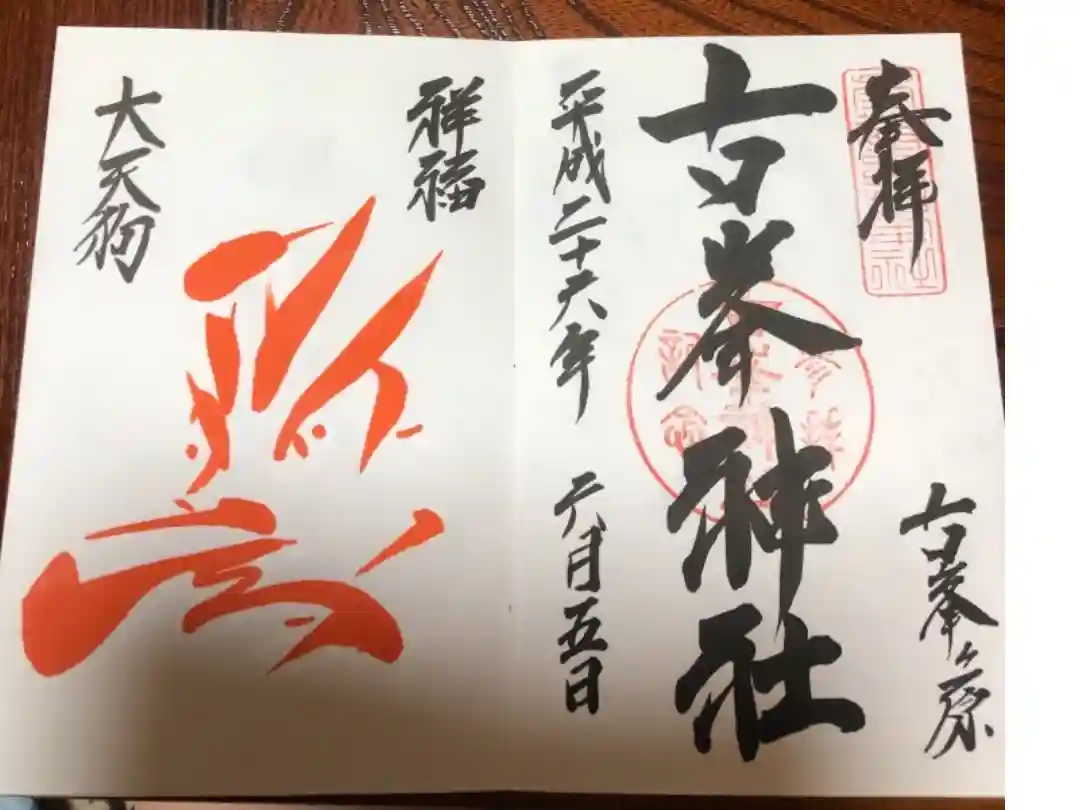 奉拝
古峯ヶ原
古峯神社
平成二十六年 六月五日
祥福
大天狗